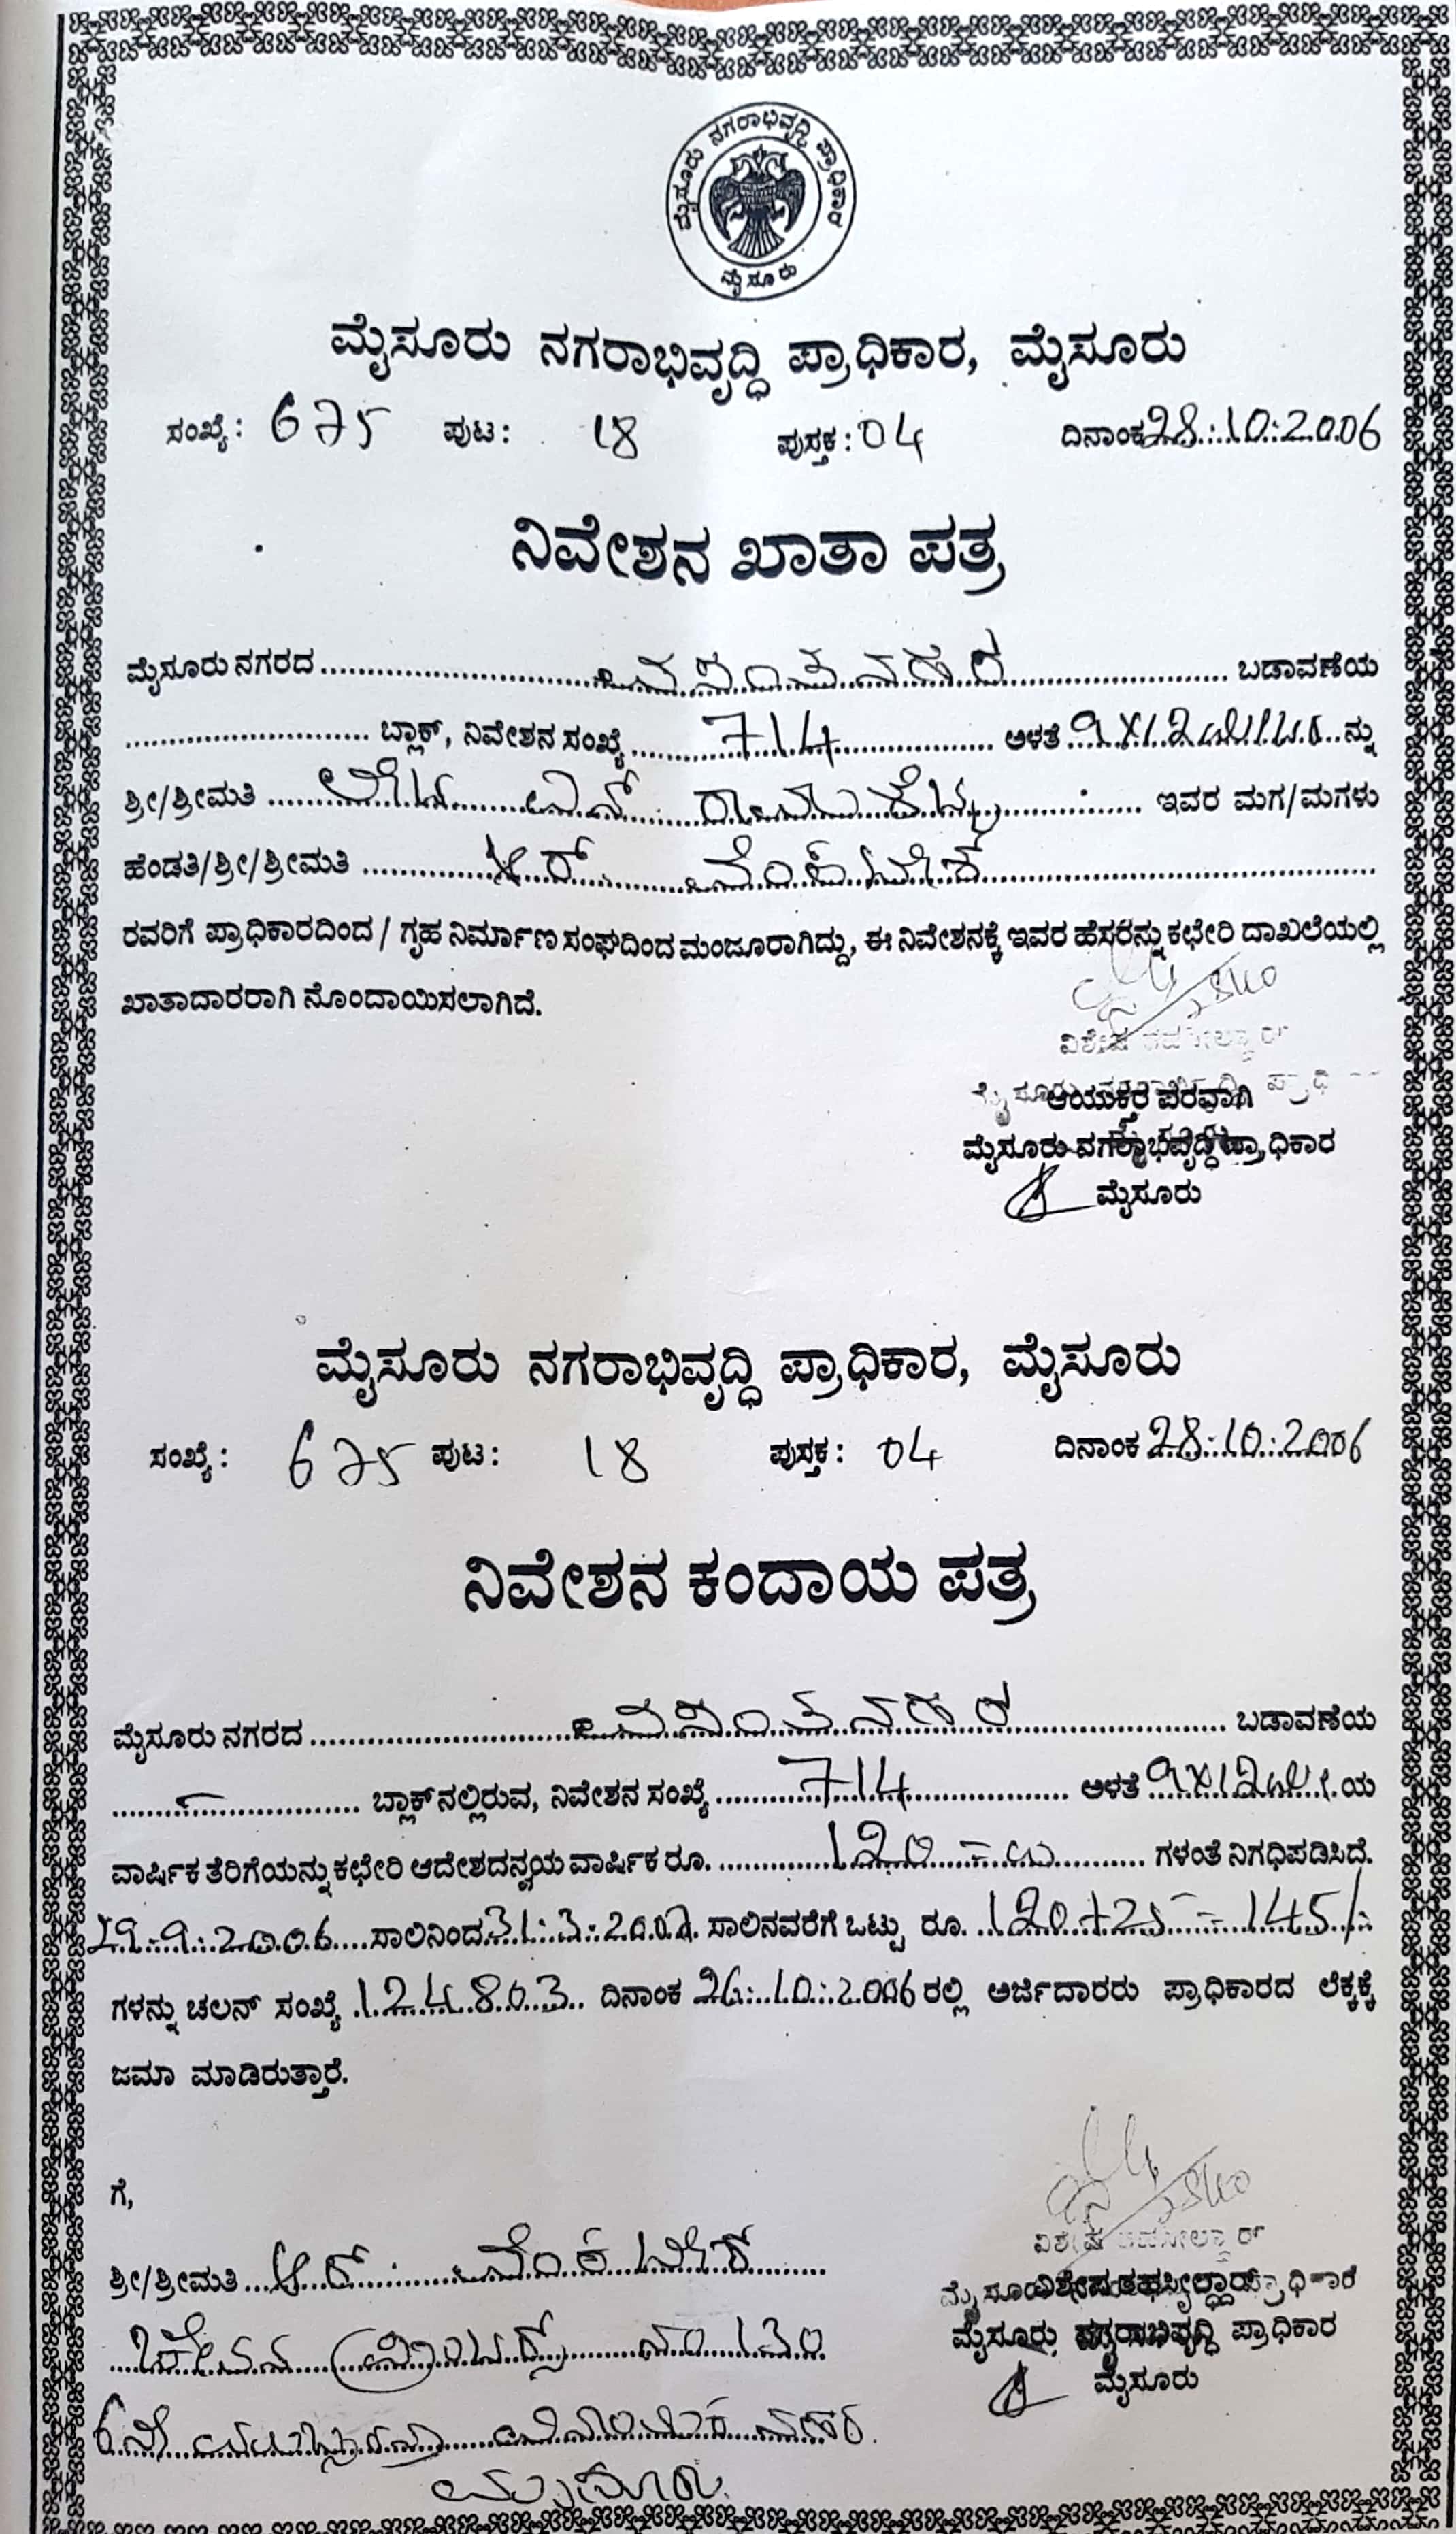 ಮೈಸೂರು ನಗರಾಭಿವೃದ್ಧಿ ಪ್ರಾಧಿಕಾರ
ಮೈಸೂರು
ಮೈಸೂರು ನಗರಾಭಿವೃದ್ಧಿ ಪ್ರಾಧಿಕಾರ, ಮೈಸೂರು
ಸಂಖ್ಯೆ: 675 ಪುಟ: 18 ಪುಸ್ತಕ: 04 ದಿನಾಂಕ 28:10:2006
ನಿವೇಶನ ಖಾತಾ ಪತ್ರ
ಮೈಸೂರು ನಗರದ ವಸಂತನಗರ ಬಡಾವಣೆಯ
ಬ್ಲಾಕ್, ನಿವೇಶನ ಸಂಖ್ಯೆ 714 ಅಳತೆ 9X12 ನ್ನು
ಶ್ರೀ/ಶ್ರೀಮತಿ ಲೇಟ್ ಎನ್ ಇವರ ಮಗ/ಮಗಳು
ಹೆಂಡತಿ/ಶ್ರೀ/ಶ್ರೀಮತಿ ಆರ್ ವೆಂಕಟೇಶ
ರವರಿಗೆ ಪ್ರಾಧಿಕಾರದಿಂದ / ಗೃಹ ನಿರ್ಮಾಣ ಸಂಘದಿಂದ ಮಂಜೂರಾಗಿದ್ದು, ಈ ನಿವೇಶನಕ್ಕೆ ಇವರ ಹೆಸರನ್ನು ಕಛೇರಿ ದಾಖಲೆಯಲ್ಲಿ
ಖಾತಾದಾರರಾಗಿ ನೊಂದಾಯಿಸಲಾಗಿದೆ.
ವಿಶೇಷ ತಹಸೀಲ್ದಾರ್
ಆಯುಕ್ತರ ಪರವಾಗಿ
ಮೈಸೂರು ನಗರಾಭಿವೃದ್ಧಿ ಪ್ರಾಧಿಕಾರ
ಮೈಸೂರು
ಮೈಸೂರು ನಗರಾಭಿವೃದ್ಧಿ ಪ್ರಾಧಿಕಾರ, ಮೈಸೂರು
ಸಂಖ್ಯೆ: 675 ಪುಟ: 18 ಪುಸ್ತಕ: 04 ದಿನಾಂಕ 28:10:2006
ನಿವೇಶನ ಕಂದಾಯ ಪತ್ರ
ಮೈಸೂರು ನಗರದ ವಸಂತನಗರ ಬಡಾವಣೆಯ
ಬ್ಲಾಕ್‌ನಲ್ಲಿರುವ, ನಿವೇಶನ ಸಂಖ್ಯೆ 714 ಅಳತೆ 9X12 ಯ
ವಾರ್ಷಿಕ ತೆರಿಗೆಯನ್ನು ಕಛೇರಿ ಆದೇಶದನ್ವಯ ವಾರ್ಷಿಕ ರೂ. 120=00 ಗಳಂತೆ ನಿಗಧಿಪಡಿಸಿದೆ.
29:9:2006 ಸಾಲಿನಿಂದ 31:3:2007 ಸಾಲಿನವರೆಗೆ ಒಟ್ಟು ರೂ. 120+25=145/-
ಗಳನ್ನು ಚಲನ್ ಸಂಖ್ಯೆ 124803 ದಿನಾಂಕ 26:10:2006 ರಲ್ಲಿ ಅರ್ಜಿದಾರರು ಪ್ರಾಧಿಕಾರದ ಲೆಕ್ಕಕ್ಕೆ
ಜಮಾ ಮಾಡಿರುತ್ತಾರೆ.
ಗೆ,
ಶ್ರೀ/ಶ್ರೀಮತಿ ಆರ್ ವೆಂಕಟೇಶ
ಚೇತನ ಪ್ರಿಂಟರ್ಸ್ ನಂ 130
6ನೇ
ಮೈಸೂರು.
ವಿಶೇಷ ತಹಸೀಲ್ದಾರ್
ವಿಶೇಷ ತಹಸೀಲ್ದಾರ್
ಮೈಸೂರು ನಗರಾಭಿವೃದ್ಧಿ ಪ್ರಾಧಿಕಾರ
ಮೈಸೂರು